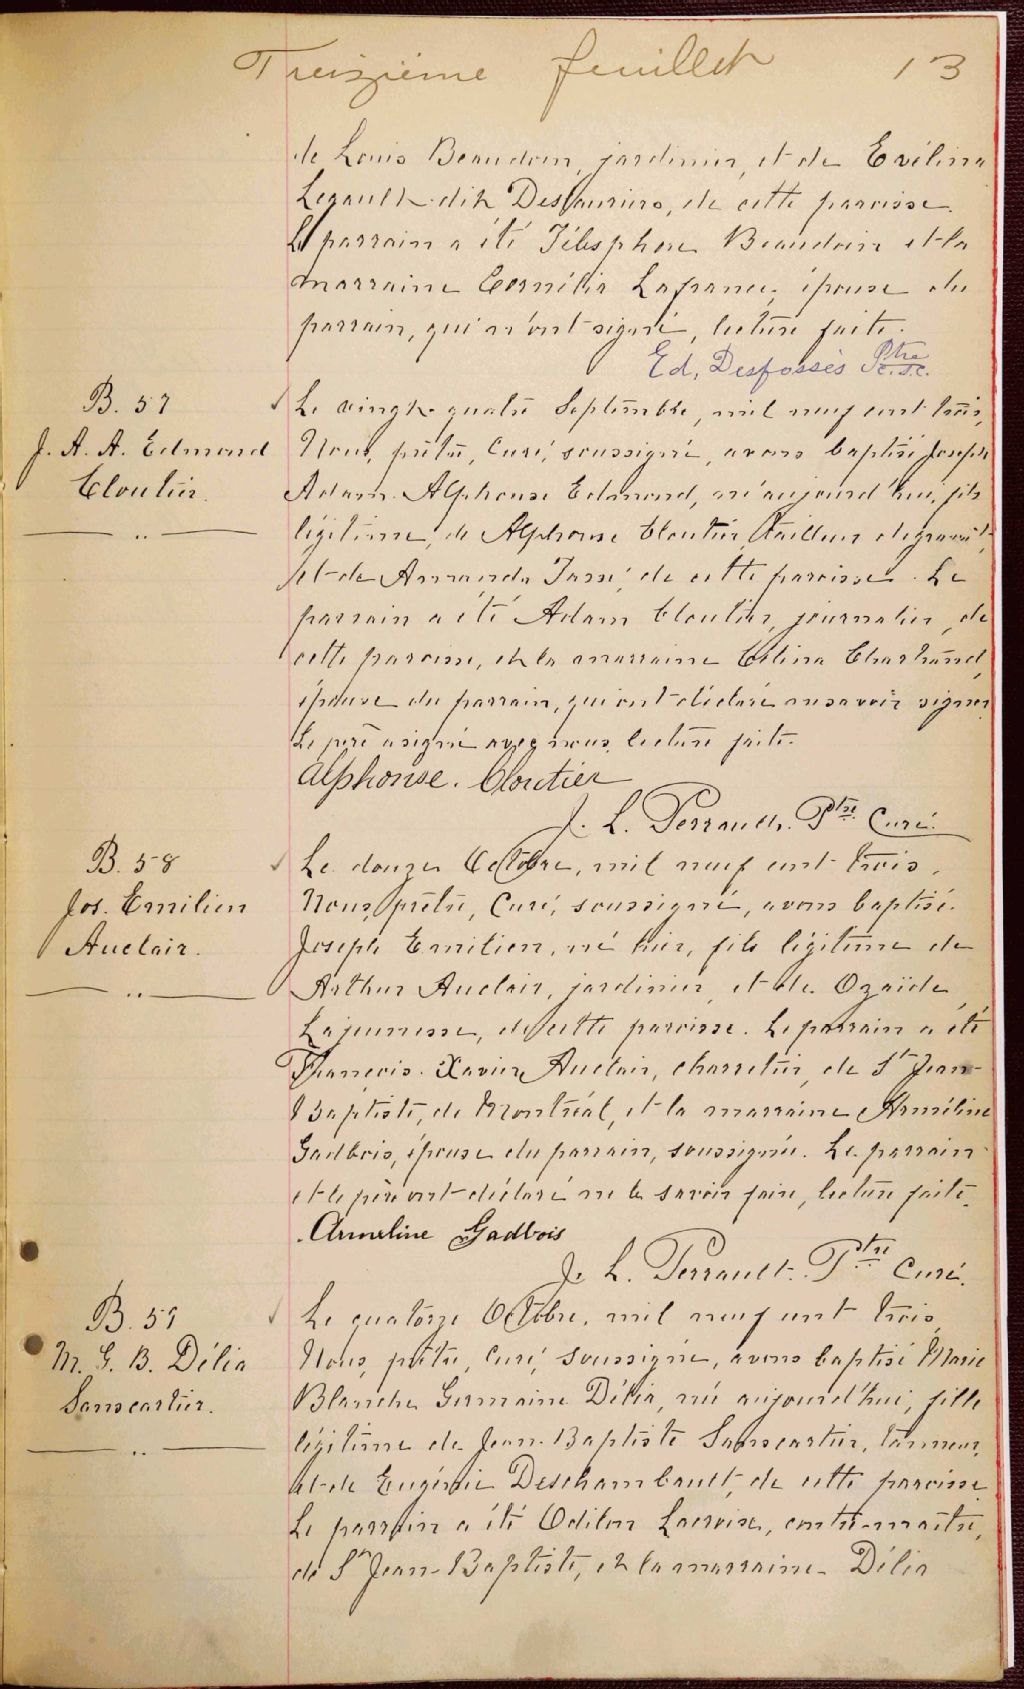 Treizième feuillet 13
de Louis Beaudoin, jardinier, et de Evélina
Legault dit Deslauriers, de cette paroisse.
Le parrain a été Télesphore Beaudoin et la
marraine Cornélia Lafrance, épouse du
parrain, qui n'ont signé, lecture faite.
Ed. Desfossés Ptre
B. 57
J. A. A. Edmond
Cloutier.
Le vingt-quatre Septembre, mil neuf cent trois,
Nous, prêtre, Curé, soussigné, avons baptisé Joseph
Adam Alphonse Edmond, né aujourd'hui, fils
légitime, de Alphonse Cloutier, tailleur de granit,
et de Amanda Jassé, de cette paroisse. Le
parrain a été Adam Cloutier, journalier, de
cette paroisse, et la marraine Célina Chartrand,
épouse du parrain, qui ont déclaré ne savoir signer.
Le père a signé avec nous, lecture faite.
Alphonse. Cloutier
J. L. Perrault. Ptre Curé.
B. 58
Jos. Emilien
Auclair.
Le douze Octobre, mil neuf cent trois,
Nous, prêtre, Curé, soussigné, avons baptisé
Joseph Emilien, né hier, fils légitime de
Arthur Auclair, jardinier, et de Ozaïde
Lajeunesse, de cette paroisse. Le parrain a été
François-Xavier Auclair, charretier, de St Jean-
Baptiste, de Montréal, et la marraine Arméline
Gadbois, épouse du parrain, soussignée. Le parrain
et le père ont déclaré ne le savoir faire, lecture faite.
Armeline Gadbois
J. L. Perrault. Ptre Curé.
B. 59
M. G. B. Délia
Sanscartier.
Le quatorze Octobre, mil neuf cent trois,
Nous, prêtre, curé, soussigné, avons baptisé Marie
Blanche Germaine Délia, née aujourd'hui, fille
légitime de Jean-Baptiste Sanscartier, tanneur,
et de Eugénie Deschambault, de cette paroisse.
Le parrain a été Odilon Lacroix, contre-maître,
de St Jean-Baptiste, et la marraine Délia